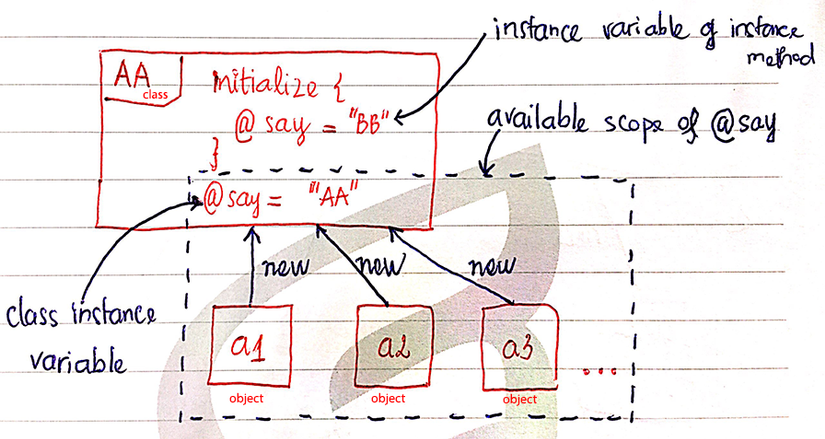 instance variable of instance
method
AA
class
initialize {
@ say = "BB"
}
available scope of @say
@say = "AA"
new
new
new
class instance
variable
a1
a2
a3
...
object
object
object